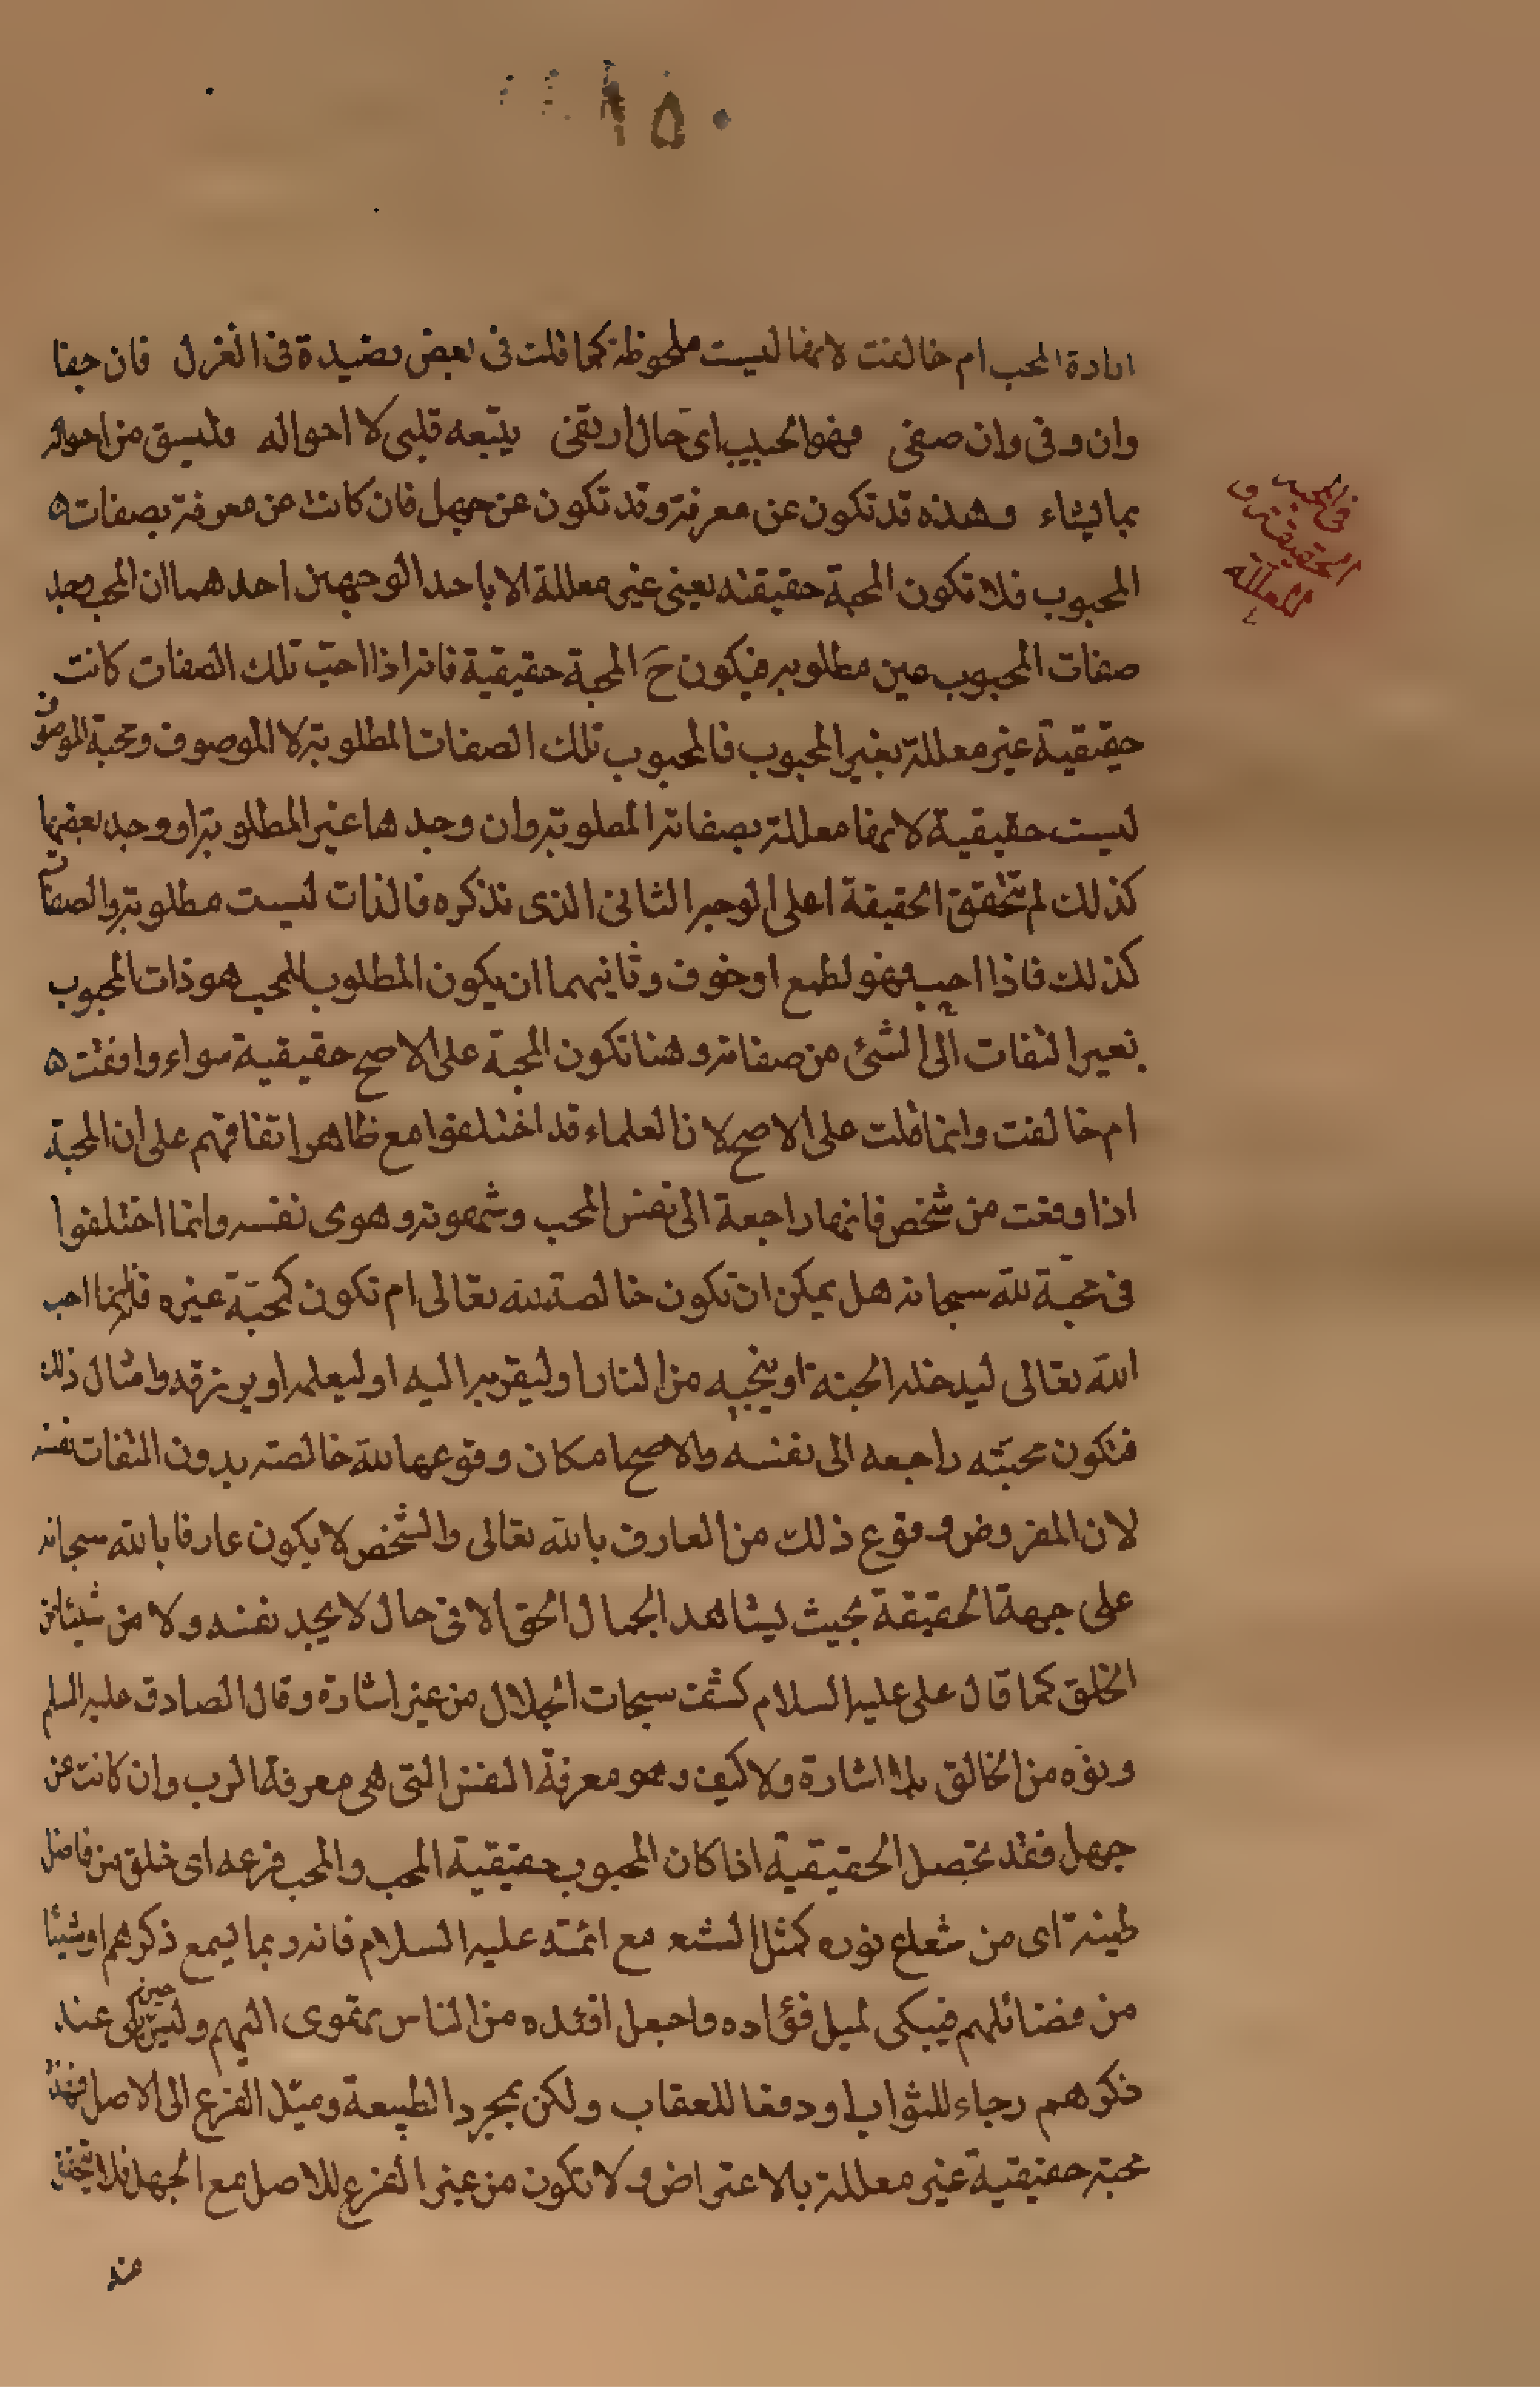 ١٥٠
ارادة المحب ام خالفت لانها ليست ملحوظة كما قلت فى بعض قصيدة فى الغزل فان جفا
وان وفى وان صفى فهو الحبيب اى حال ارتقى يتبعه قلبى لا احواله فليسق من احواله
بما يشاء وهذه قد تكون عن معرفة وقد تكون عن جهل فان كانت عن معرفة بصفات
فى المحبة
الحقيقية و
المعللة
المحبوب فلا تكون المحبة حقيقته يعنى غير معللة الا باحد الوجهين احدهما ان المحب يجد
صفات المحبوب عين مطلوبه فيكون ح المحبة حقيقية فانه اذا احب تلك الصفات كانت
حقيقية غير معللة بغير المحبوب فالمحبوب تلك الصفات المطلوبة لا الموصوف ومحبة الموصوف
ليست حقيقية لانها معللة بصفاته المطلوبة وان وجدها غير المطلوبة او وجد بعضها
كذلك لم تتحقق الحقيقة اعلى الوجه الثانى الذى نذكره فالذات ليست مطلوبة والصفات
كذلك فاذا احب فهو لطمع او خوف وثانيهما ان يكون المطلوب للمحب هو ذات المحبوب
بغير التفات الى الشئ من صفاته وهنا تكون المحبة على الاصح حقيقية سواء وافقت
ام خالفت وانما قلت على الاصح لان العلماء قد اختلفوا مع ظاهر اتفاقهم على ان المحبة
اذا وقعت من شخص فانها راجعة الى نفس المحب وشهوته وهوى نفسه وانما اختلفوا
فى محبة لله سبحانه هل يمكن ان تكون خالصة لله تعالى ام تكون كمحبة غيره فانما احب
الله تعالى ليدخله الجنة او ينجيه من النار او ليقربه اليه او ليعلمه او يرزقه وامثال ذلك
فتكون محبته راجعه الى نفسه والاصح امكان وقوعها لله خالصة بدون التفات نفسه
لان المفروض وقوع ذلك من العارف بالله تعالى والشخص لا يكون عارفا بالله سبحانه
على جهة الحقيقة بحيث يشاهد الجمال الحق الا فى حال لا يجد نفسه ولا من شيئا من
الخلق كما قال على عليه السلام كشف سبحات الجلال من غير اشارة وقال الصادق عليه السلم
ونوره من الخالق بلا اشارة ولا كيف وهو معرفة النفس التى هى معرفة الرب وان كانت عن
جهل فقد تحصل الحقيقية اذا كان المحبوب حقيقية المحب والمحب فرعه اى خلق من فاضل
طينة اى من شعاع نوره كمثل الشعر مع ائمته عليه السلام فانه ربما يسمع ذكرهم او شيئا
من فضائلهم فيبكى لميل فؤاده فاجعل افئده من الناس تهوى اليهم وليس حين بكى عند
ذكرهم رجاء للثواب او دفعا للعقاب ولكن بمجرد الطبيعة وميل الفرع الى الاصل فهذه
محبة حقيقية غير معللة بالاعتراض ولا تكون من غير الفرع للاصل مع الجهل فلا تتحقق
من